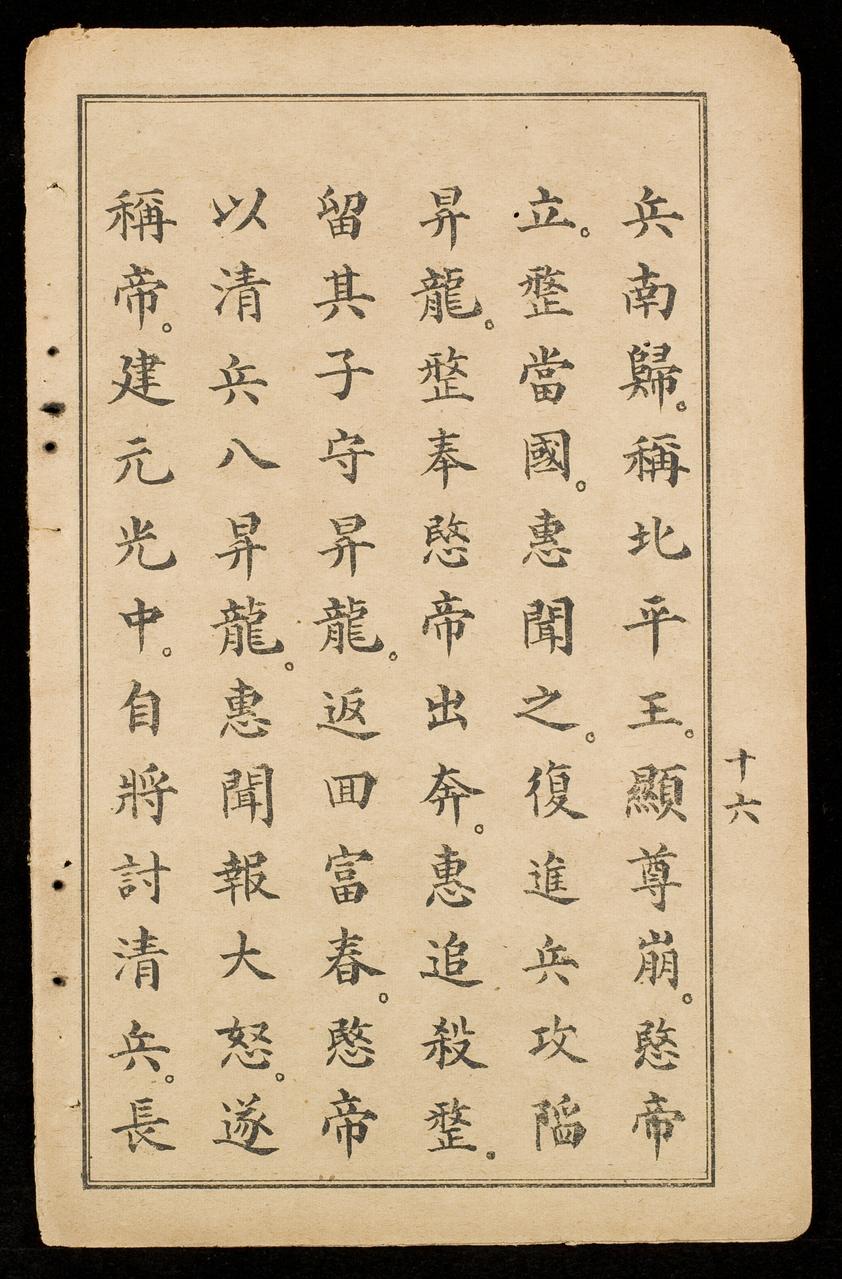 兵南歸。稱北平王。顯尊崩。愍帝
立。整當國。惠聞之。復進兵攻陷
昇龍。整奉愍帝出奔。惠追殺整。
留其子守昇龍。返囬富春。愍帝
以清兵八昇龍。惠聞報大怒。遂
稱帝。建元光中。自將討清兵。長
十六